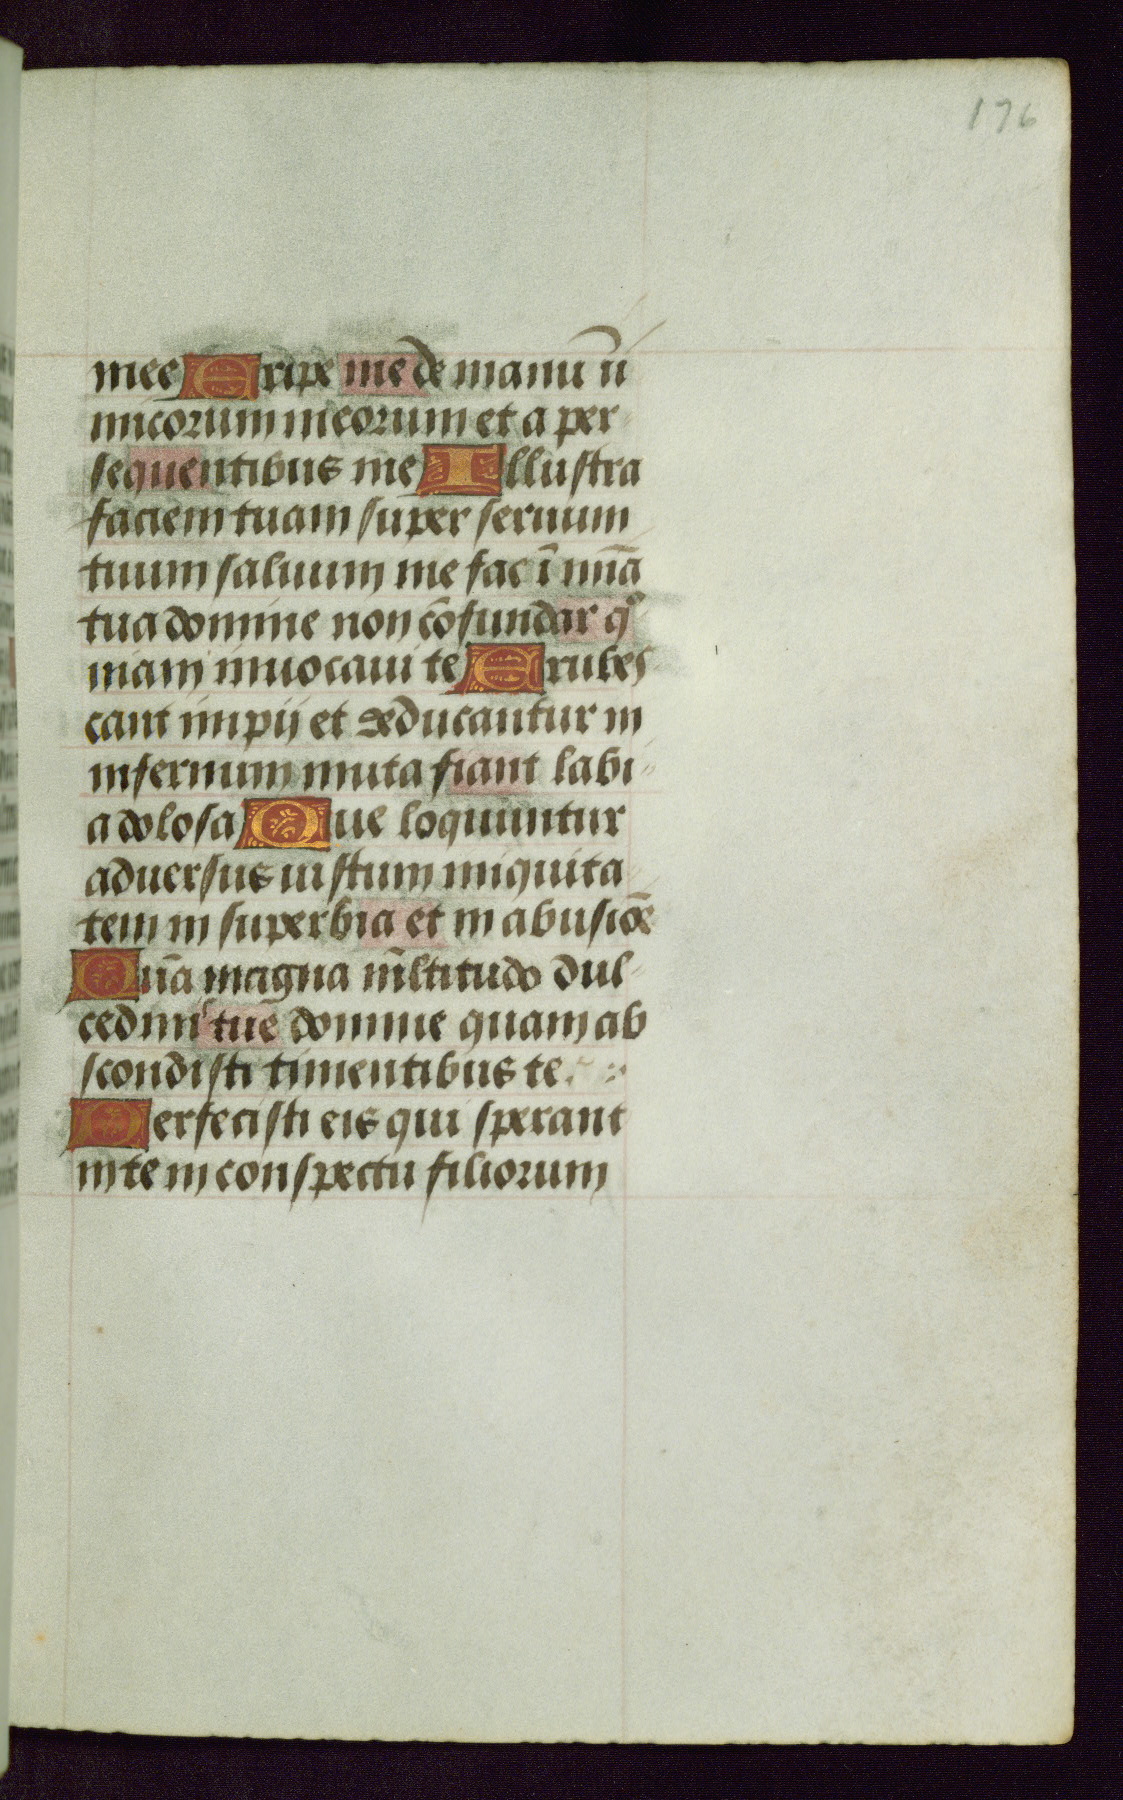 176
mee Eripe me de manu in
imicorum meorum et a per
sequentibus me Illustra
faciem tuam super seruum
tuum saluum me fac ī mīa
tua domine non cōfundar qo
niam inuocaui te Erubes
cant impij et deducantur in
infernum muta fiant labi
a dolosa Que loquuntur
aduersus iustum iniquita
tem in superbia et in abusiōe
Quā magna mltitudo dul
cedinis tue domine quam ab
scondisti timentibus te
Perfecisti eis qui sperant
in te in conspectu filiorum